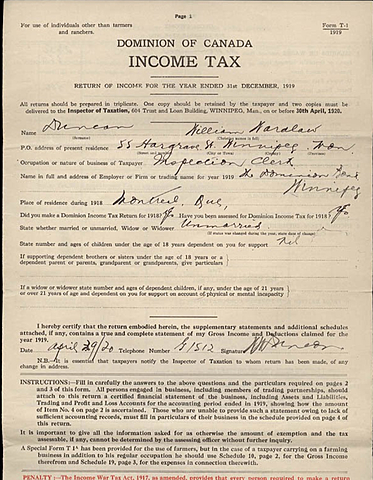 Page 1
For use of individuals other than farmers
and ranchers.
Form T-1
1919
DOMINION OF CANADA
INCOME TAX
RETURN OF INCOME FOR THE YEAR ENDED 31ST DECEMBER, 1919
All returns should be prepared in triplicate. One copy should be retained by the taxpayer and two copies must be
delivered to the Inspector of Taxation, 604 Trust and Loan Building, WINNIPEG, Man., on or before 30th April, 1920.
Name Duncan William Wardlaw
(Surname) (Christian names in full)
P.O. address of present residence 55 Hargrave St. Winnipeg Man
Occupation or nature of business of Taxpayer Inspection Clerk
Name in full and address of Employer or Firm or trading name for year 1919 The Dominion Bank
Winnipeg
Place of residence during 1918 Montreal, Que,
Did you make a Dominion Income Tax Return for 1918? No Have you been assessed for Dominion Income Tax for 1918? No
State whether married or unmarried, Widow or Widower Unmarried
(If status was changed during the year, state date of change)
State number and ages of children under the age of 18 years dependent on you for support nil
If supporting dependent brothers or sisters under the age of 18 years or a
dependent parent or parents, grandparent or grandparents, give particulars
If a widow or widower state number and ages of dependent children, if any, under the age of 21 years
or over 21 years of age and dependent on you for support on account of physical or mental incapacity
I hereby certify that the return embodied herein, the supplementary statements and additional schedules
attached, if any, contain a true and complete statement of my Gross Income and Deductions claimed for the
year 1919.
Date April 29/20 Telephone Number Signature
N.B.—It is essential that taxpayers notify the Inspector of Taxation to whom return has been made, of any
change in address.
INSTRUCTIONS:—Fill in carefully the answers to the above questions and the particulars required on pages 2
and 3 of this form. All persons engaged in business, including members of trading partnerships, should
attach to this return a certified financial statement of the business, including Assets and Liabilities,
Trading and Profit and Loss Accounts for the accounting period ended in 1919, showing how the amount
of Item No. 6 on page 2 is ascertained. Those who are unable to provide such a statement owing to lack of
sufficient accounting records, must fill in particulars of their business in the schedule provided on page 4 of
this return.
It is important to give all the information asked for as otherwise the amount of exemption and the tax
assessable, if any, cannot be determined by the assessing officer without further inquiry.
A Special Form T 1A has been provided for the use of farmers, but in the case of a taxpayer carrying on a farming
business in addition to his regular occupation he should use Schedule 18, page 2, for the Gross Income
therefrom and Schedule 19, page 3, for the expenses in connection therewith.
PENALTY:—The Income War Tax Act, 1917, as amended, provides that every person required to make a return